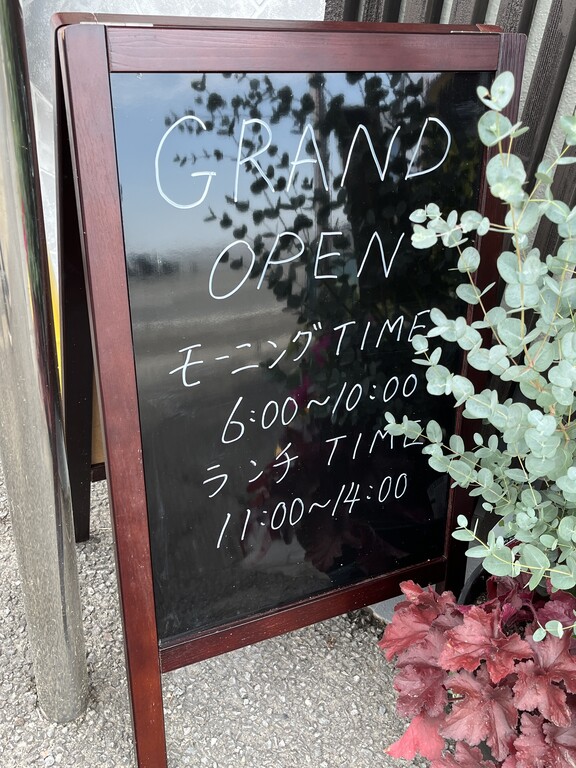 GRAND
OPEN
モーニングTIME
6:00~10:00
ランチ TIME
11:00~14:00